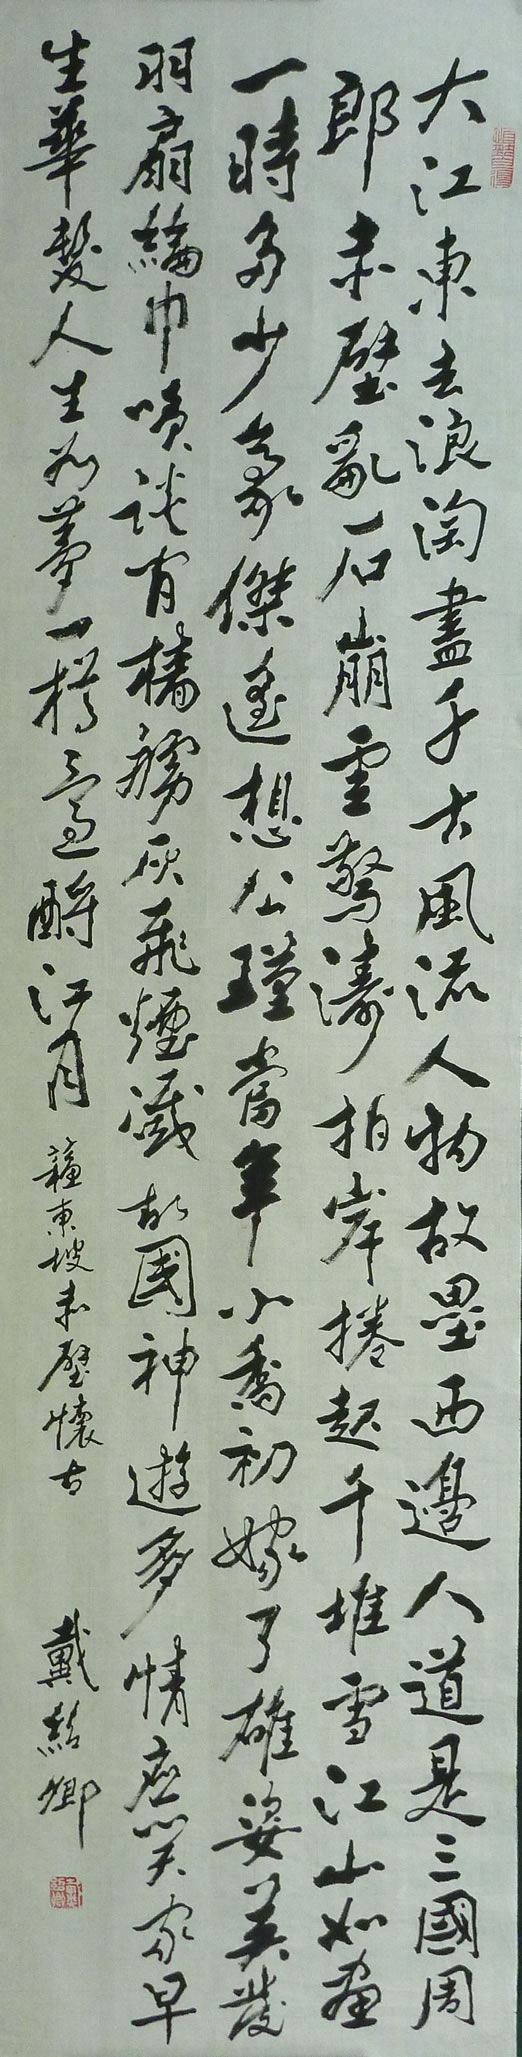 大江東去浪淘盡千古風流人物故壘西邊人道是三國周
郎赤壁亂石崩雲驚濤拍岸捲起千堆雪江山如畫
一時多少豪傑遙想公瑾當年小喬初嫁了雄姿英發
羽扇綸巾咲談間檣艣灰飛煙滅故國神遊多情應笑我早
生華髮人生如夢一樽還酹江月
蘇東坡赤壁懷古
戴紹卿